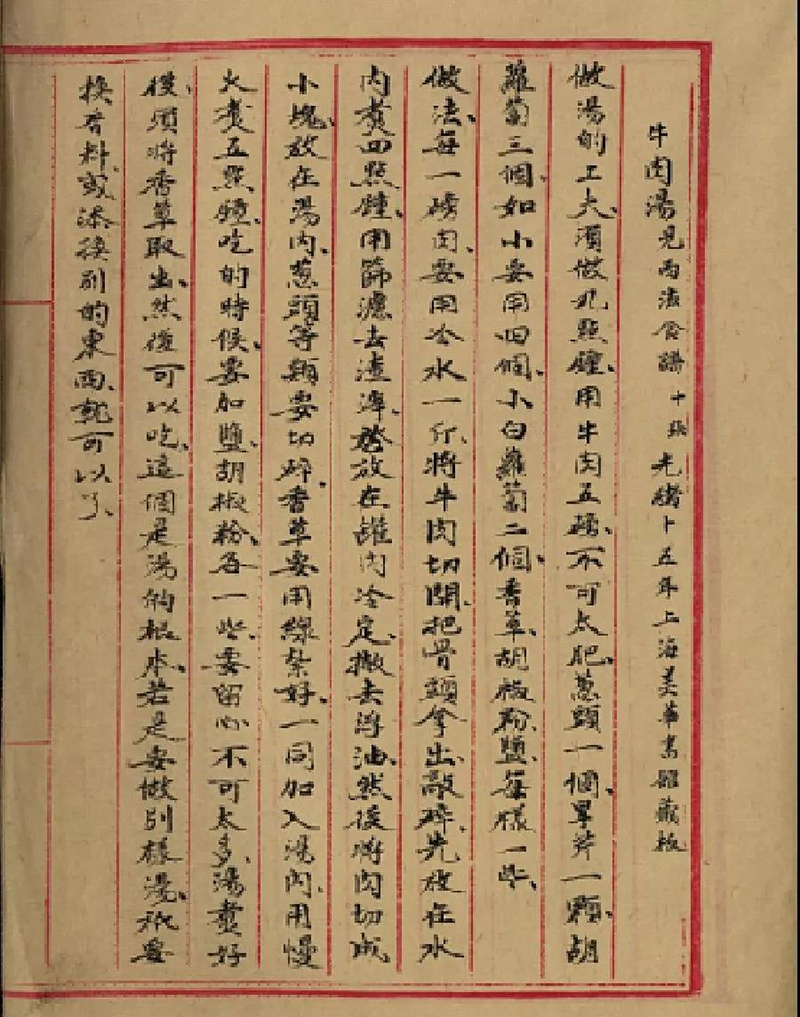 牛肉湯見西法食譜十張光緒十五年上海美華書館藏板
做湯的工夫須做九點鐘、用牛肉五磅、不可太肥、蔥頭一個、旱芹一顆、胡
蘿蔔三個、如小要用四個、小白蘿蔔二個、香草、胡椒粉、鹽、每樣一些、
做法、每一磅肉、要用冷水一斤、將牛肉切開、把骨頭拿出、敲碎、先放在水
內煑四點鐘、用篩濾去渣滓、盛放在罐內冷定、撇去浮油、然後將肉切成
小塊、放在湯內、蔥頭等類要切碎、香草要用線紮好、一同加入湯內、用慢
火煑五點鐘、吃的時候、要加鹽胡椒粉各一些、要留心不可太多、湯煑好
後、須將香草取出、然後可以吃、這個是湯的根本、若是要做別樣湯、祇要
換香料、或添換別的東西、就可以了、